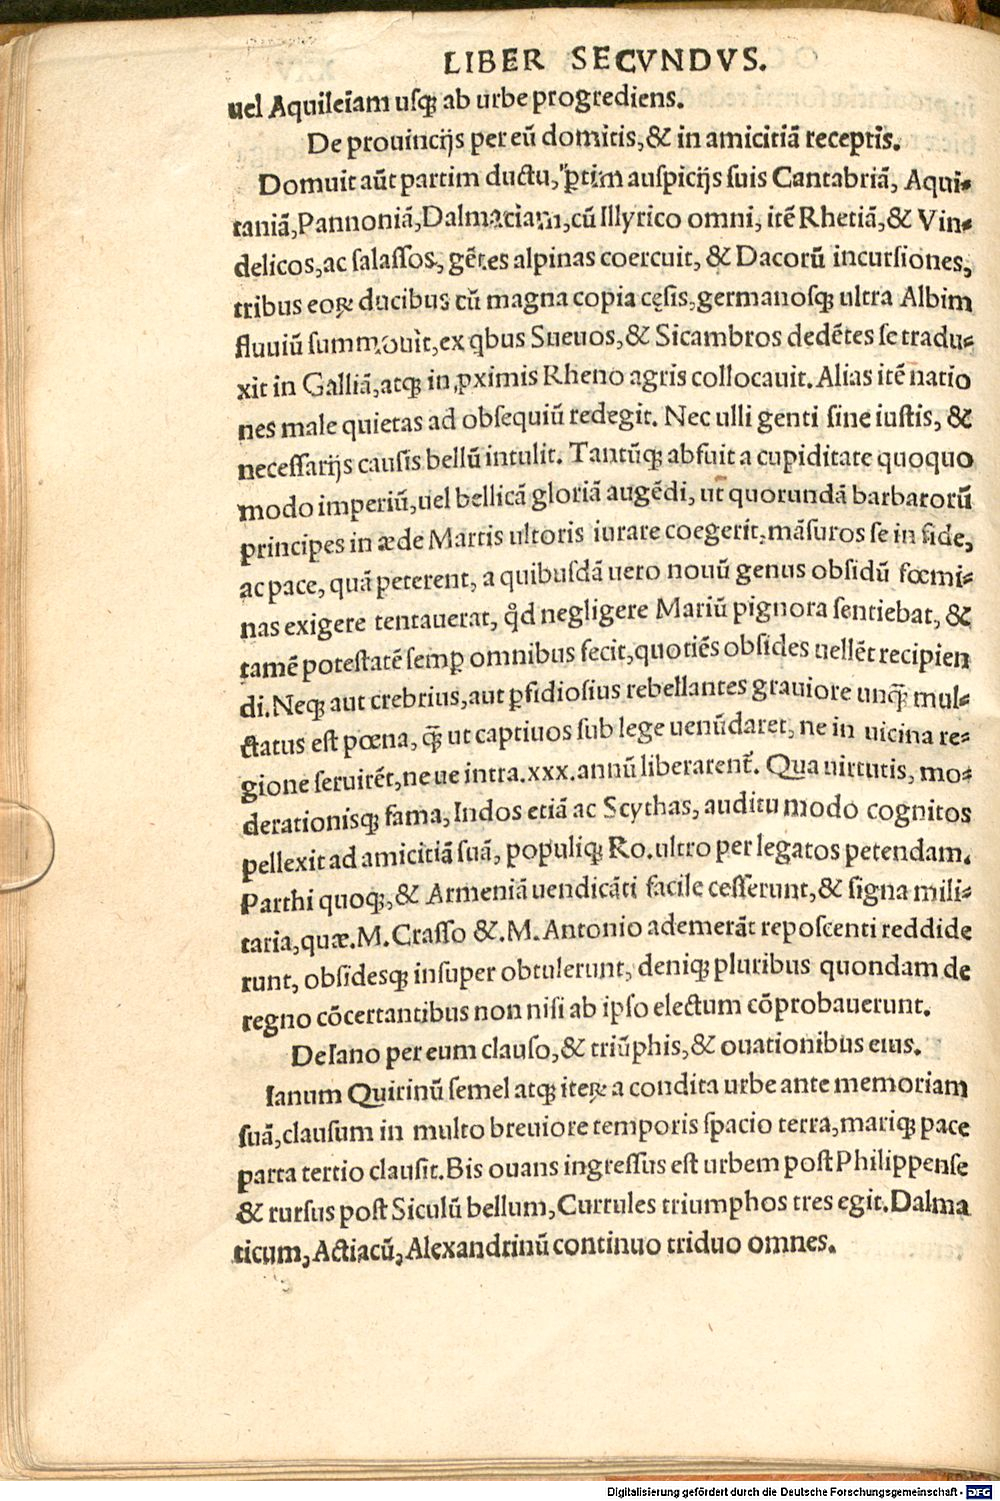 LIBER SECVNDVS.
uel Aquileiam usq̃ ab urbe progrediens.
De prouincijs per eũ domitis,& in amicitiã receptis.
Domuit aũt partim ductu, ꝑtim auspicijs suis Cantabriã, Aqui-
taniã,Pannoniã,Dalmatiam,cũ Illyrico omni, itẽ Rhetiã,& Vin-
delicos,ac salassos, gẽtes alpinas coercuit, & Dacorũ incursiones,
tribus eoꝝ ducibus cũ magna copia cęsis,germanosq; ultra Albim
fluuiũ summouit,ex qbus Sueuos,& Sicambros dedẽtes se tradu-
xit in Galliã,atq; in ꝓximis Rheno agris collocauit. Alias itẽ natio
nes male quietas ad obsequiũ redegit. Nec ulli genti sine iustis, &
necessarijs causis bellũ intulit. Tantũq; abfuit a cupiditate quoquo
modo imperiũ,uel bellicã gloriã augẽdi, ut quorundã barbarorũ
principes in æde Martis ultoris iurare coegerit,mãsuros se in fide,
ac pace, quã peterent, a quibusdã uero nouũ genus obsidũ fœmi-
nas exigere tentauerat, qd̉ negligere Mariũ pignora sentiebat, &
tamẽ potestatẽ semꝑ omnibus fecit,quotiẽs obsides uellẽt recipien
di. Neq; aut crebrius,aut ꝑfidiosius rebellantes grauiore unq̃ mul-
ctatus est pœna, q̃ ut captiuos sub lege uenũdaret, ne in uicina re-
gione seruirẽt,ne ue intra.xxx.annũ liberarent̃. Qua uirtutis, mo-
derationisq; fama, Indos etiã ac Scythas, auditu modo cognitos
pellexit ad amicitiã suã, populiq; Ro.ultro per legatos petendam.
Parthi quoq;,& Armeniã uendicãti facile cesserunt,& signa mili-
taria,quæ.M.Crasso &.M.Antonio ademerãt reposcenti reddide
runt, obsidesq; insuper obtulerunt, deniq; pluribus quondam de
regno cõcertantibus non nisi ab ipso electum cõprobauerunt.
De Iano per eum clauso,& triũphis,& ouationibus eius.
Ianum Quirinũ semel atq; iteꝝ a condita urbe ante memoriam
suã,clausum in multo breuiore temporis spacio terra,mariq; pace
parta tertio clausit. Bis ouans ingressus est urbem post Philippense
& rursus post Siculũ bellum, Currules triumphos tres egit. Dalma
ticum, Actiacũ, Alexandrinũ continuo triduo omnes.
Digitalisierung gefördert durch die Deutsche Forschungsgemeinschaft - DFG